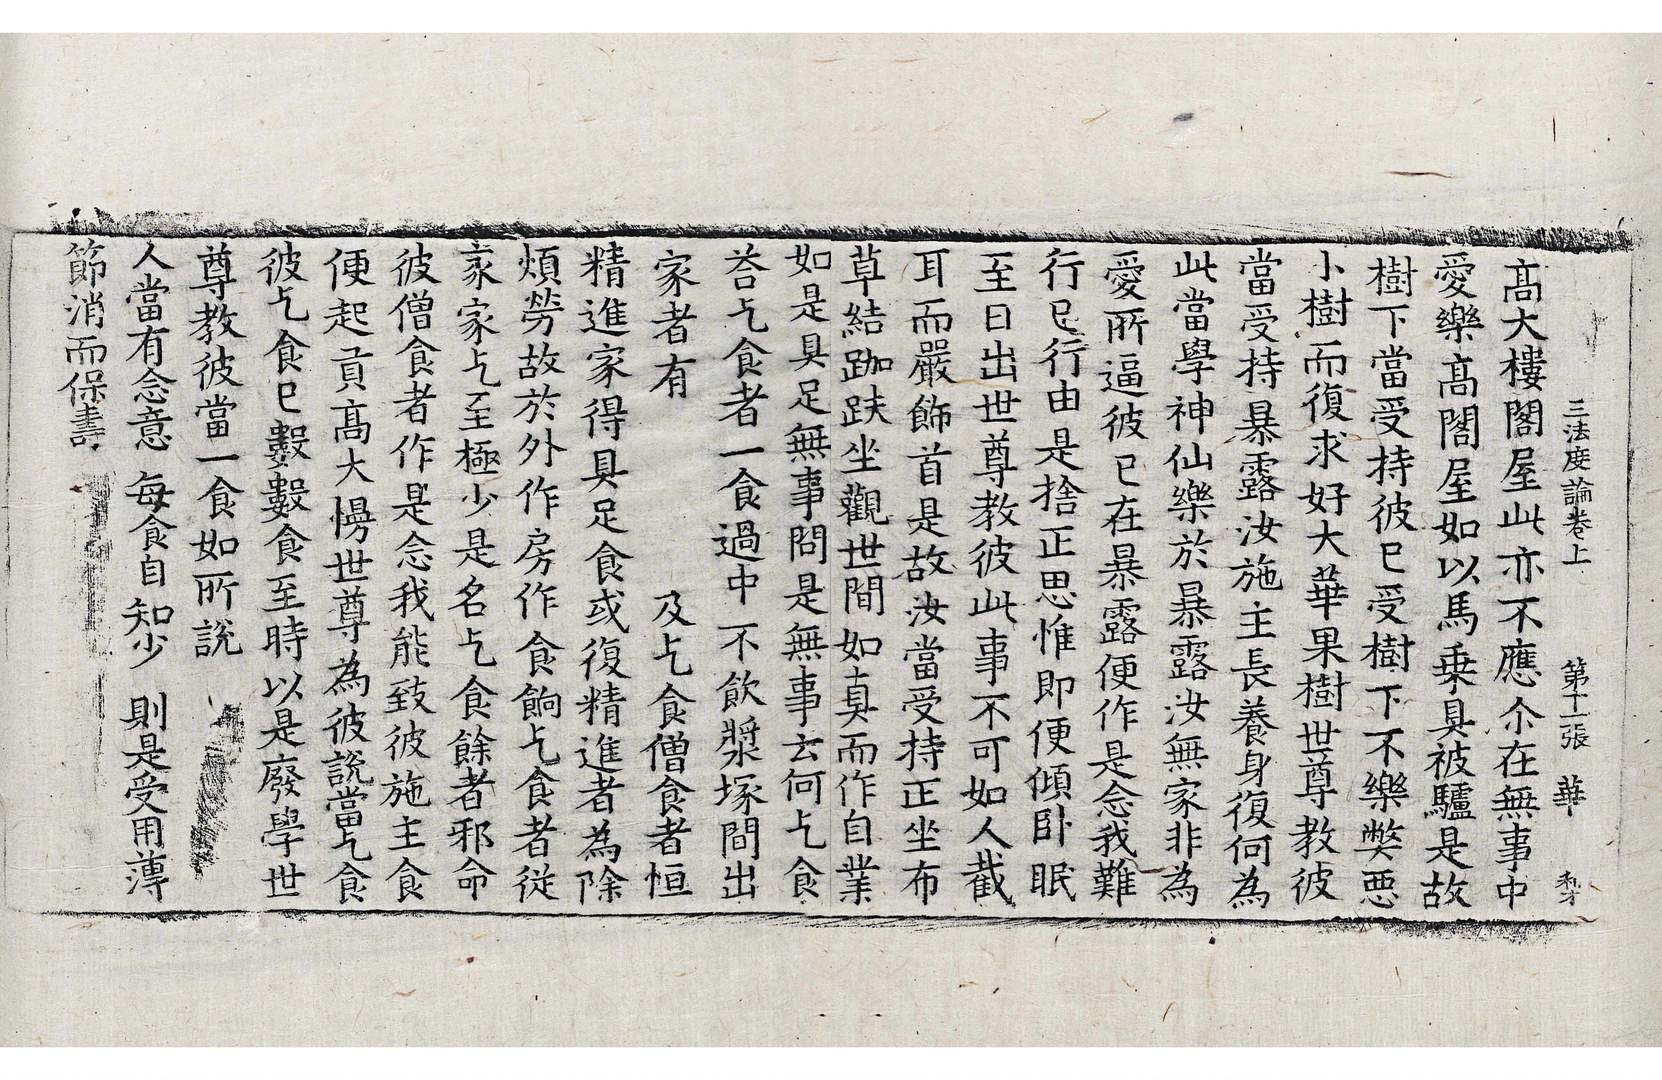 三法度論卷上 第十一張 華
髙大樓閣屋此亦不應尒在無事中
愛樂髙閣屋如以馬乗具被驢是故
樹下當受持彼已受樹下不樂弊惡
小樹而復求好大華果樹世尊教彼
當受持暴露汝施主長養身復何為
此當學神仙樂於暴露汝無家非為
愛所逼彼已在暴露便作是念我難
行已行由是捨正思惟即便傾卧眠
至日出世尊教彼此事不可如人截
耳而嚴飾首是故汝當受持正坐布
草結跏趺坐觀世間如真而作自業
如是具足無事問是無事云何乞食
荅乞食者一食過中不飲漿塚間出
家者有 及乞食僧食者恒
精進家得具足食或復精進者為除
煩勞故於外作房作食餉乞食者従
家家乞至極少是名乞食餘者邪命
彼僧食者作是念我能致彼施主食
便起貢髙大慢世尊為彼說當乞食
彼乞食已數數食至時以是廢學世
尊教彼當一食如所說
人當有念意 每食自知少 則是受用薄
節消而保壽